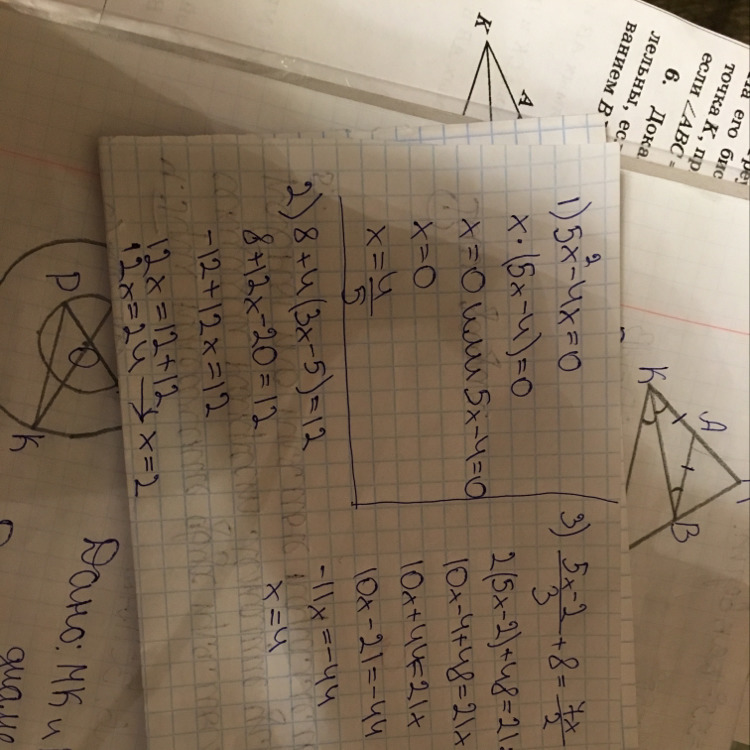 1) 5x²-4x=0
x·(5x-4)=0
x=0 или 5x-4=0
x=0
x=4/5
2) 8+4(3x-5)=12
8+12x-20=12
-12+12x=12
12x=12+12
12x=24 → x=2
3) (5x-2)/3+8=7x/2
2(5x-2)+48=21x
10x-4+48=21x
10x+44=21x
10x-21=-44
-11x=-44
x=4
K
A
его бис
точка K, пр
если ∠ABC=
6. Дока
лельны, ес
ванием B
K
A
B
P
O
K
Дано: MK и